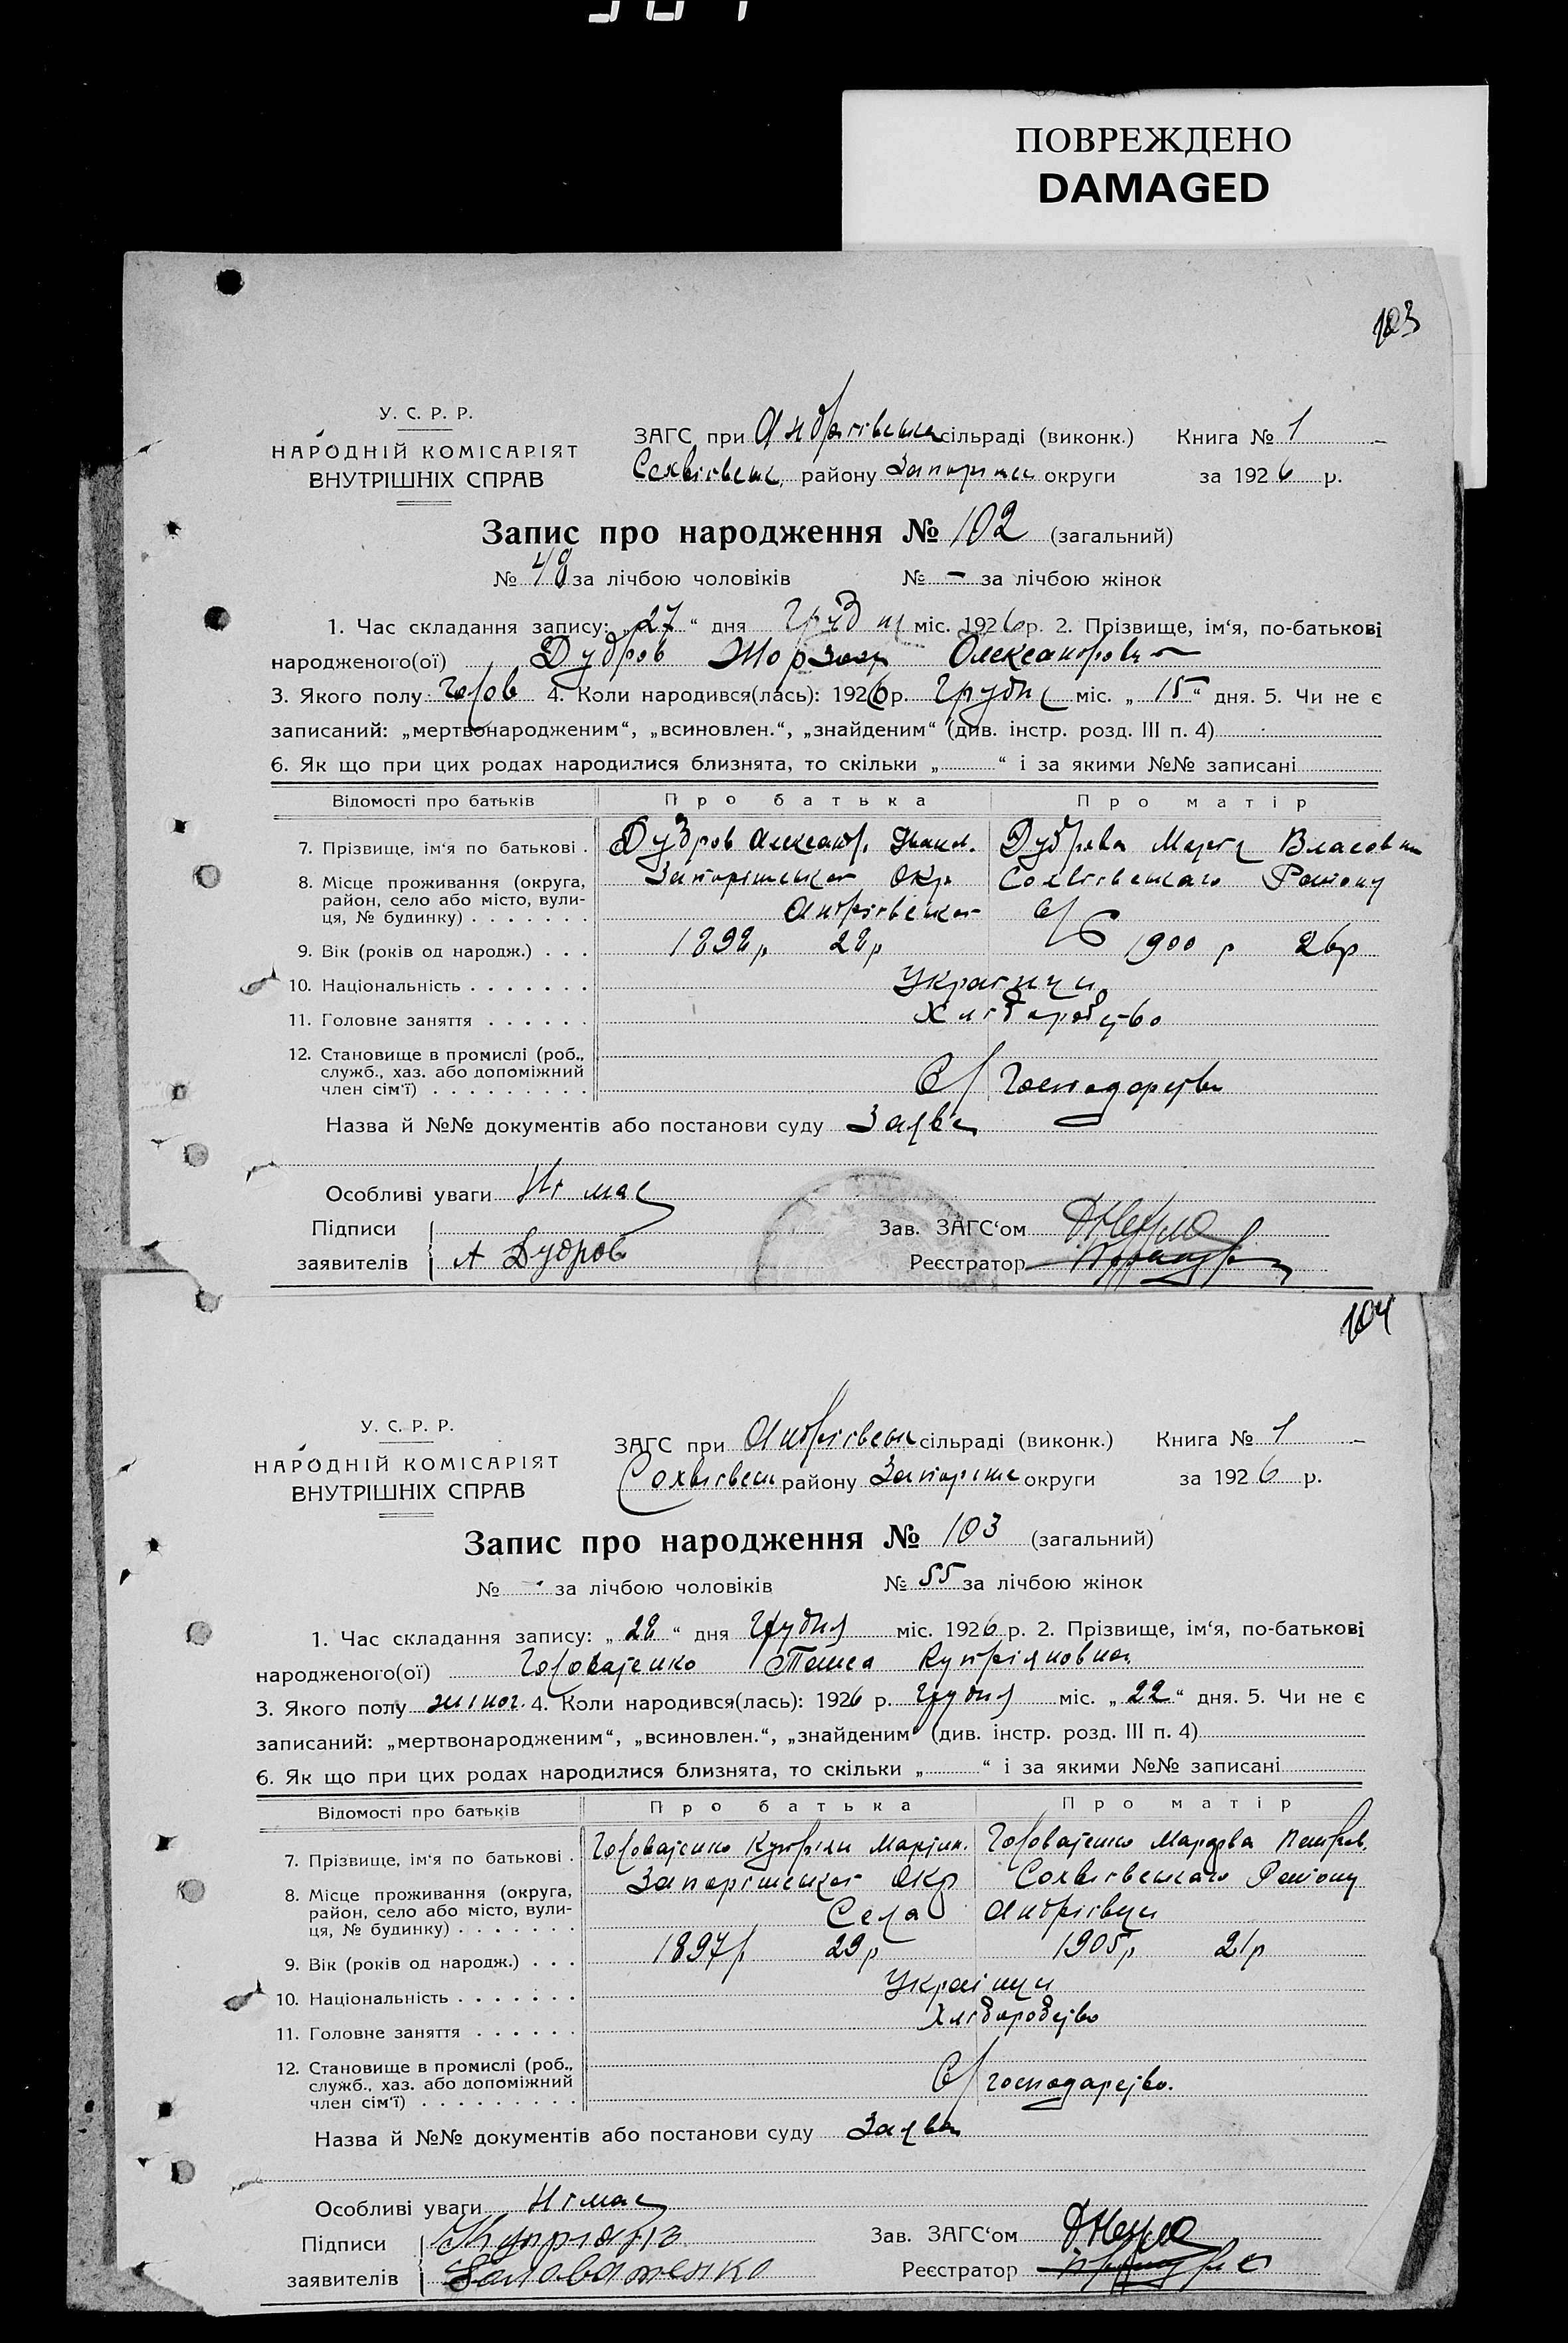 ПОВРЕЖДЕНО
DAMAGED
103
У. С. Р. Р.
НАРОДНІЙ КОМІСАРІЯТ
ВНУТРІШНІХ СПРАВ
ЗАГС при Андріївська сільраді (виконк.) Книга № 1
району округи за 1926 р.
Запис про народження № 102 (загальний)
№ 48 за лічбою чоловіків № – за лічбою жінок
1. Час складання запису: „27“ дня міс. 1926 р. 2. Прізвище, ім‘я, по-батькові
народженого(ої) Дудров Олександрович
3. Якого полу 4. Коли народився(лась): 1926 р. Грудня міс. „15“ дня. 5. Чи не є
записаний: „мертвонародженим“, „всиновлен.“, „знайденим“ (див. інстр. розд. III п. 4)
6. Як що при цих родах народилися близнята, то скільки „ “ і за якими №№ записані
Відомості про батьків Про батька Про матір
7. Прізвище, ім‘я по батькові . Дудров Александ. Иван. Власовна
8. Місце проживання (округа, Запоріжської Окр Району
район, село або місто, вули-
ця, № будинку) . . . . . . . Андріївської с/с
9. Вік (років од народж.) . . . 1898р 28р 1900 р 26р
10. Національність . . . . . . . Українці
11. Головне заняття . . . . . . Хліборобство
12. Становище в промислі (роб.,
служб., хаз. або допоміжний С/Господарство
член сім‘ї) . . . . . . . . .
Назва й №№ документів або постанови суду Заява
Особливі уваги Не має
Підписи Зав. ЗАГС‘ом
заявителів А Дудров Реєстратор
104
У. С. Р. Р.
НАРОДНІЙ КОМІСАРІЯТ
ВНУТРІШНІХ СПРАВ
ЗАГС при Андріївськ сільраді (виконк.) Книга № 1
району округи за 1926 р.
Запис про народження № 103 (загальний)
№ - за лічбою чоловіків № 55 за лічбою жінок
1. Час складання запису: „28“ дня Грудня міс. 1926 р. 2. Прізвище, ім‘я, по-батькові
народженого(ої) Головатенко Купріяновна
3. Якого полу жіноч. 4. Коли народився(лась): 1926 р. Грудня міс. „22“ дня. 5. Чи не є
записаний: „мертвонародженим“, „всиновлен.“, „знайденим“ (див. інстр. розд. III п. 4)
6. Як що при цих родах народилися близнята, то скільки „ “ і за якими №№ записані
Відомості про батьків Про батька Про матір
7. Прізвище, ім‘я по батькові . Головатенко Купріян Мартин. Головатенко Петров.
8. Місце проживання (округа, Запоріжської Окр Району
район, село або місто, вули-
ця, № будинку) . . . . . . . Села Андріївци
9. Вік (років од народж.) . . . 1897р 29р 1905р 21р
10. Національність . . . . . . . Українци
11. Головне заняття . . . . . . Хліборобство
12. Становище в промислі (роб.,
служб., хаз. або допоміжний С/господарство.
член сім‘ї) . . . . . . . . .
Назва й №№ документів або постанови суду Заява
Особливі уваги Не має
Підписи Зав. ЗАГС‘ом
заявителів Головатенко Реєстратор